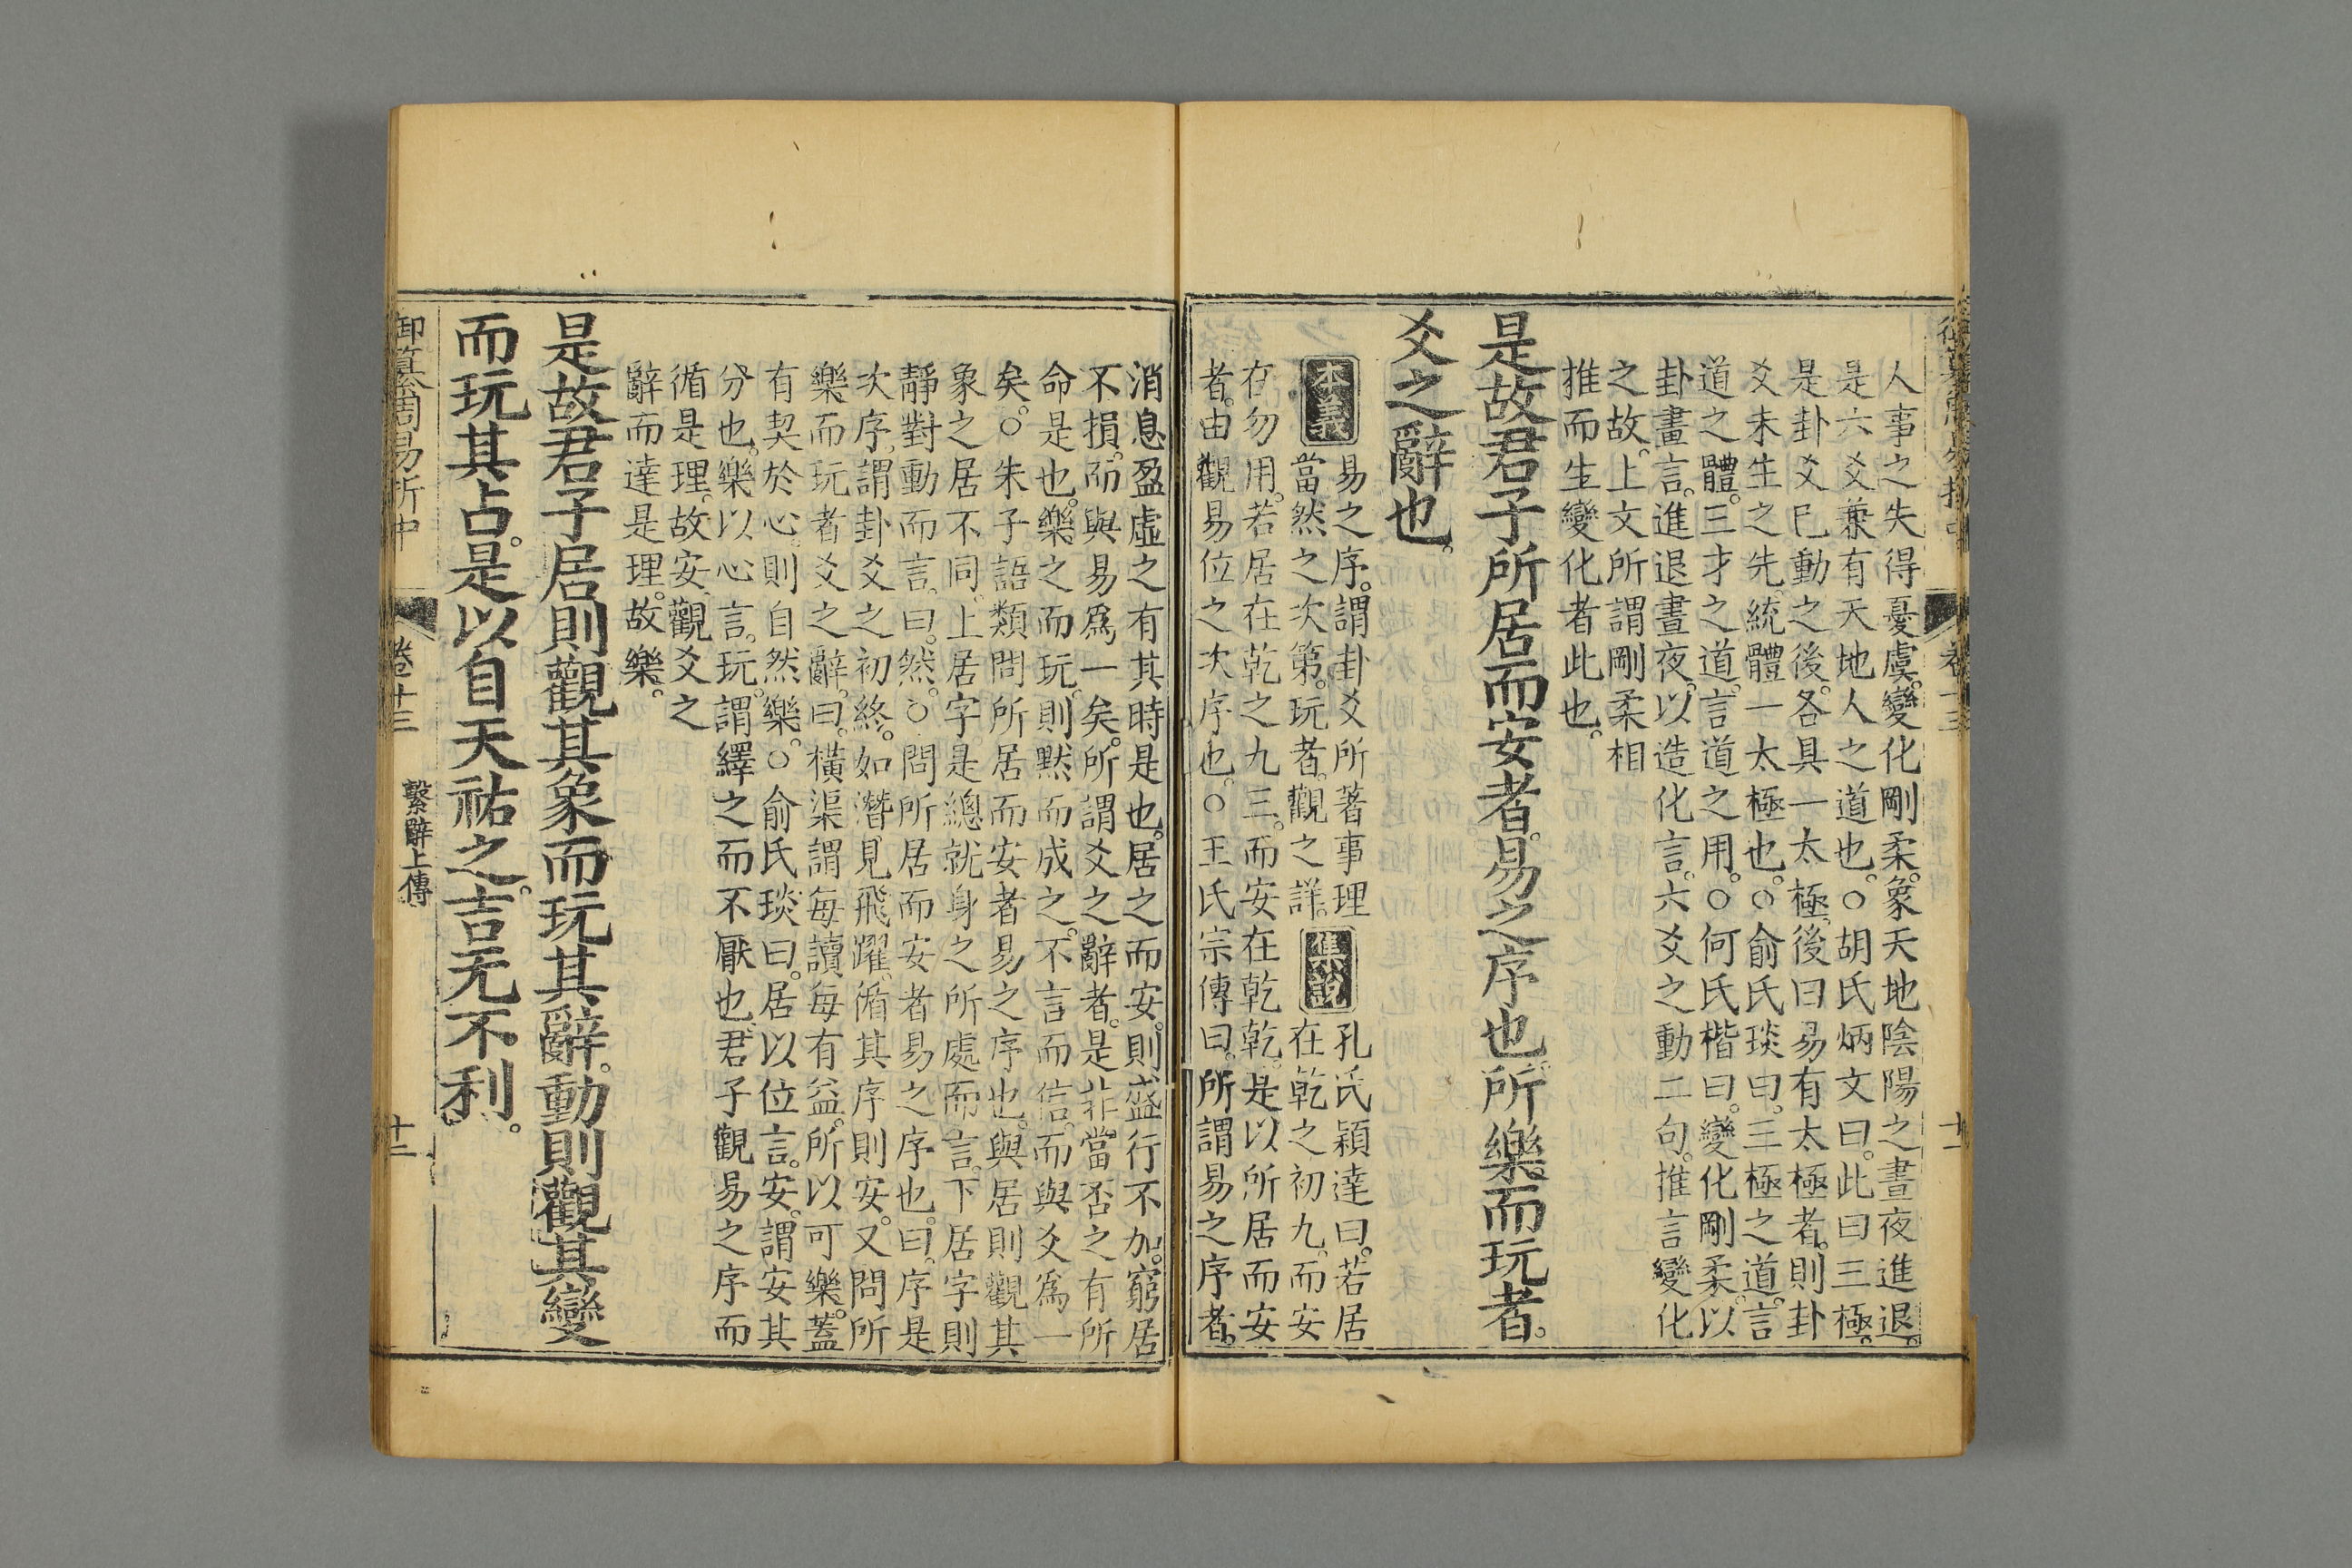 人事之失得憂虞。變化剛柔。象天地陰陽之晝夜進退。
是六爻兼有天地人之道也。○胡氏炳文曰。此曰三極。
是卦爻巳動之後。各具一太極。後曰易有太極者。則卦
爻未生之先。統體一太極也。○俞氏琰曰。三極之道。言
道之體。三才之道。言道之用。○何氏楷曰。變化剛柔。以
卦畫言。進退晝夜。以造化言。六爻之動二句。推言變化
之故。上文所謂剛柔相
推而生變化者此也。
是故君子所居而安者。易之序也。所樂而玩者。
爻之辭也。
本義 易之序。謂卦爻所著事理當然之次第。玩者。觀之詳。
集說 孔氏穎達曰。若居在乾之初九。而安
在勿用。若居在乾之九三。而安在乾乾。是以所居而安
者。由觀易位之次序也。○王氏宗傳曰。所謂易之序者。
消息盈虛之有其時是也。居之而安。則盛行不加。窮居
不損。而與易爲一矣。所謂爻之辭者。是非當否之有所
命是也。樂之而玩。則默而成之。不言而信。而與爻爲一
矣。○朱子語類問所居而安者易之序也。與居則觀其
象之居不同。上居字是總就身之所處而言。下居字則
靜對動而言。曰。然。○問所居而安者易之序也。曰。序是
次序。謂卦爻之初終。如潛見飛躍。循其序則安。又問所
樂而玩者爻之辭。曰。橫渠謂每讀每有益。所以可樂。蓋
有契於心。則自然樂。○俞氏琰曰。居以位言。安。謂安其
分也。樂以心言。玩。謂繹之而不厭也。君子觀易之序而
循是理。故安。觀爻之
辭而達是理。故樂。
是故君子居則觀其象而玩其辭。動則觀其變
而玩其占。是以自天祐之。吉无不利。
御纂周易折中 卷十三 繫辭上傳 十二